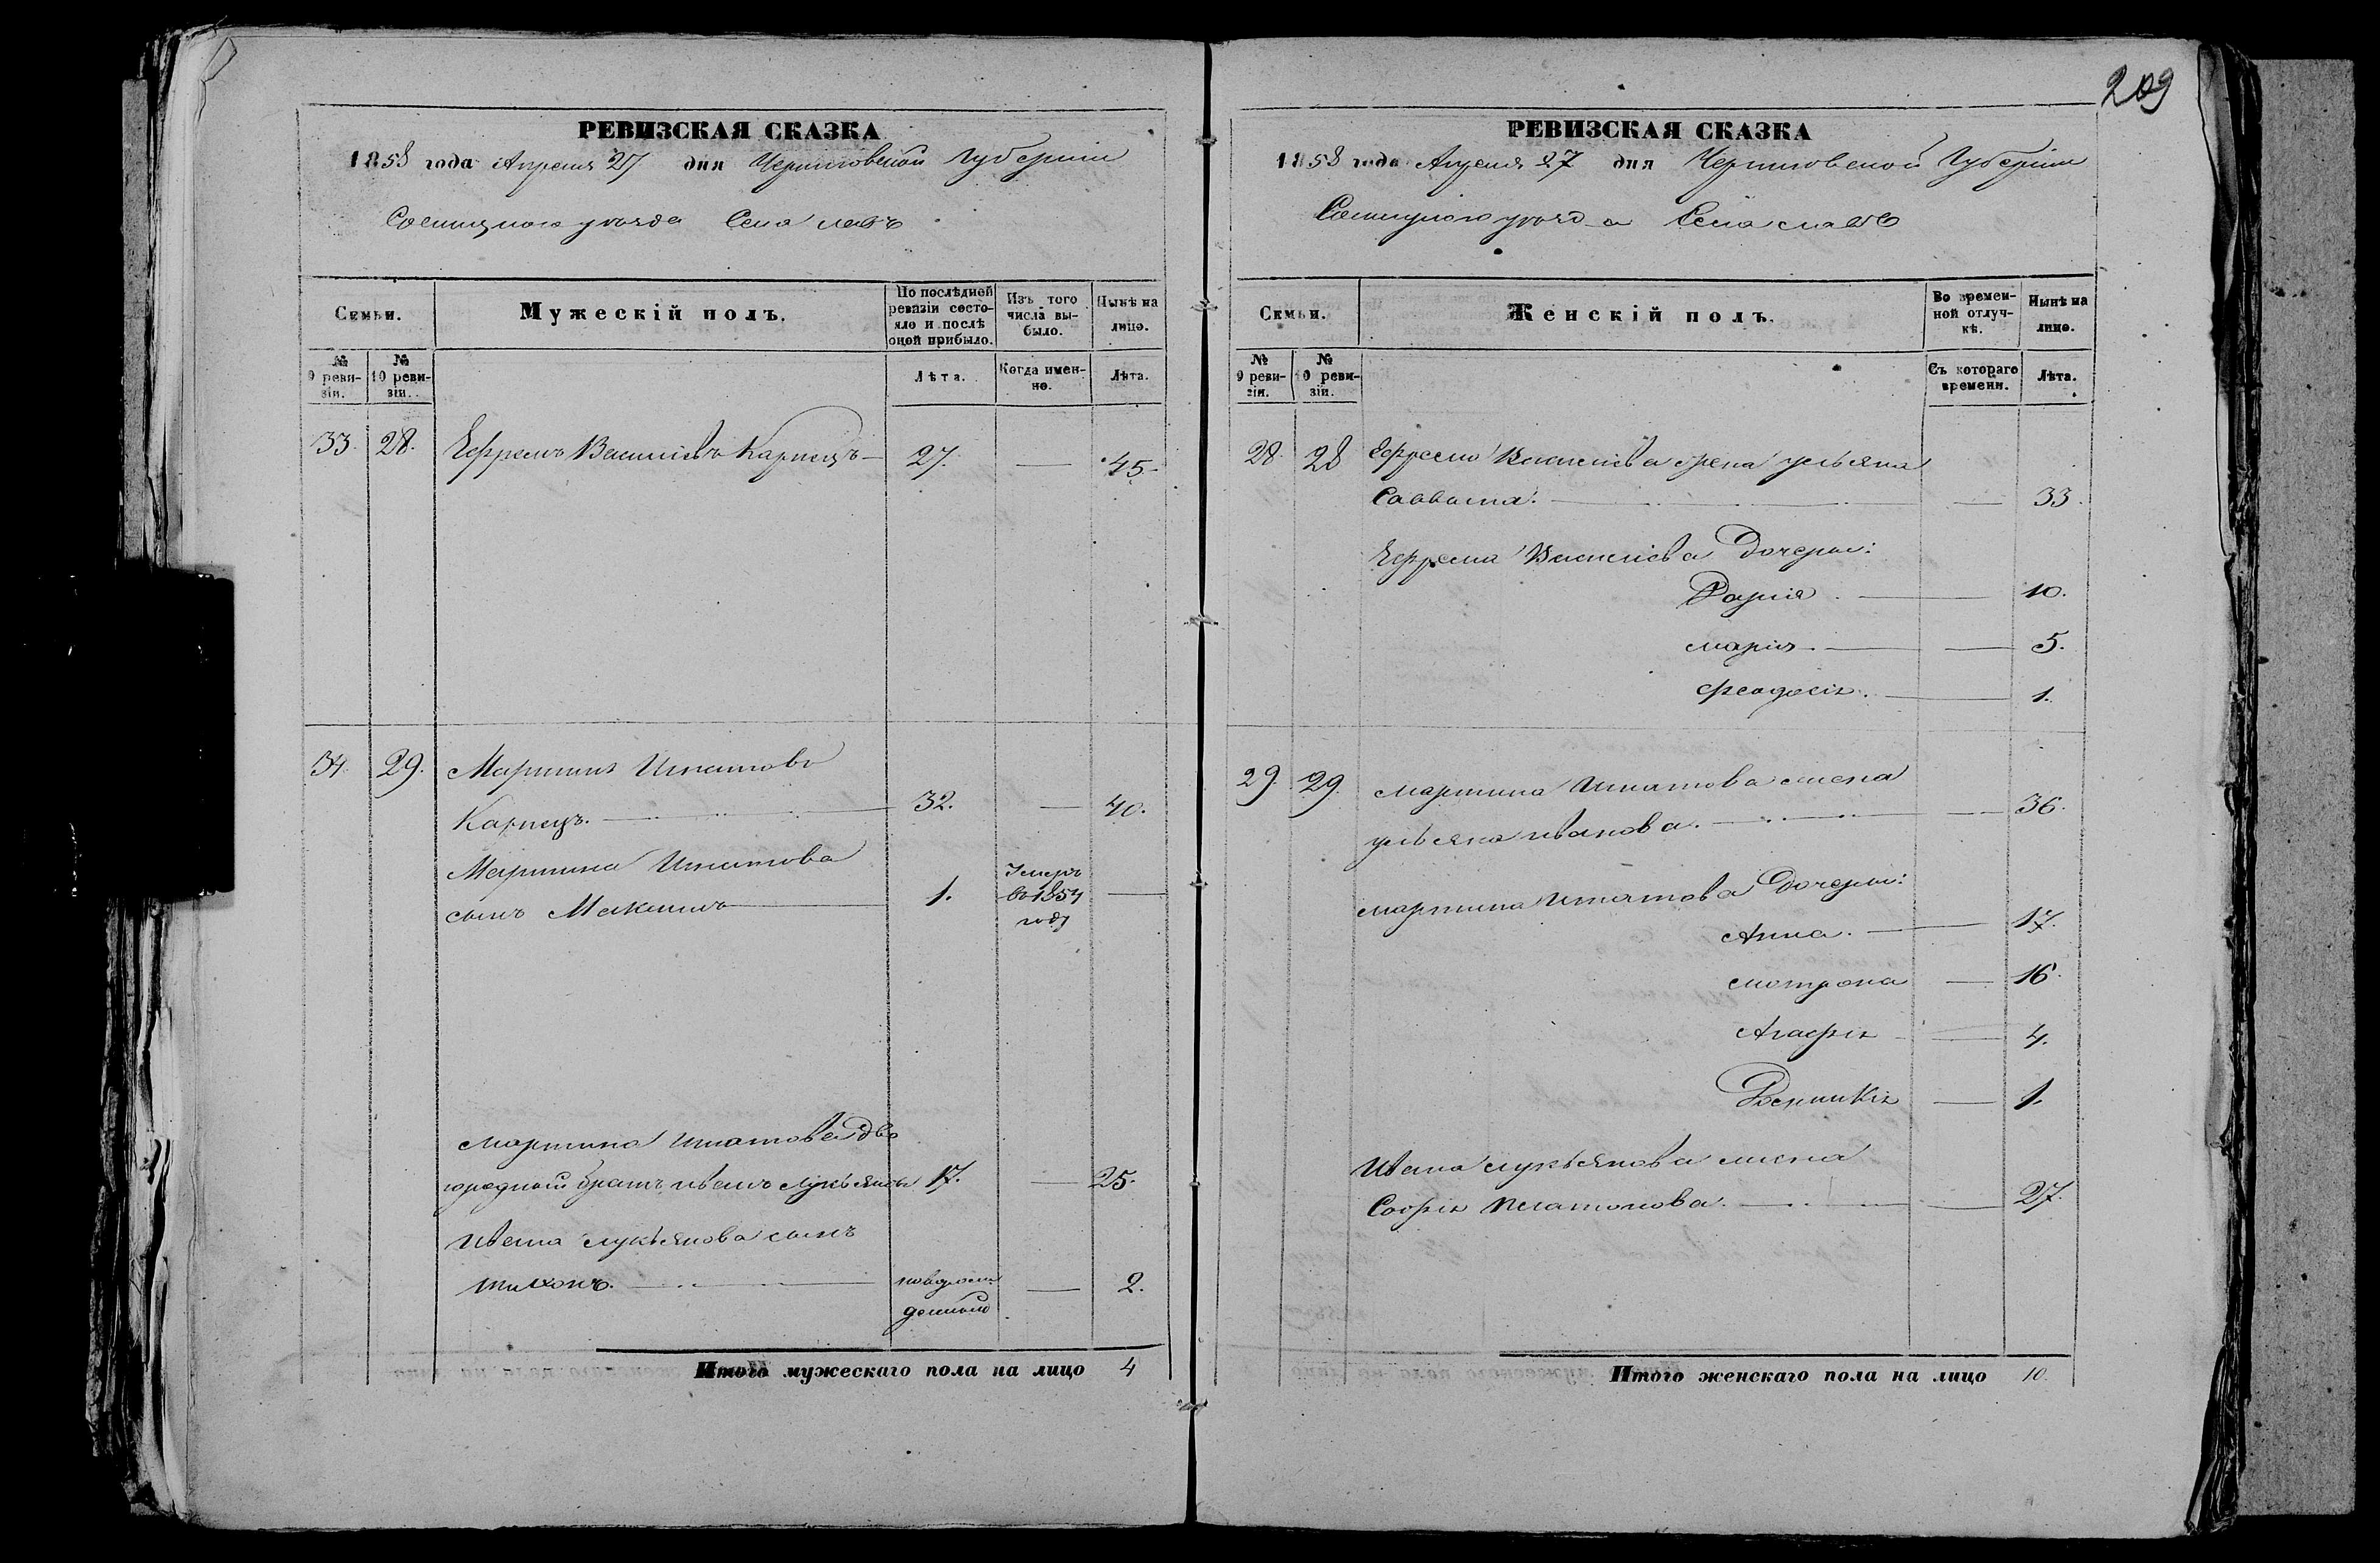 209
РЕВИЗСКАЯ СКАЗКА
1858 года Апреля 27 дня Черниговской Губернiи
Сосницкаго уезда Села
Семьи.
Мужескiй полъ.
По послѣдней ревизiи состояло и послѣ оной прибыло.
Изъ того числа выбыло.
Нынѣ на лицо.
№ 9 ревизiи.
№ 10 ревизiи.
Лѣта.
Когда именно.
Лѣта.
33. 28. Ефремъ Василiевъ Карпецъ — 27. — 45.
34. 29. Мартинъ Игнатовъ
Карпецъ. — 32. — 40.
Мартина Игнатова
сынъ Максимъ — 1. Умеръ в 1854 году —
Мартина Игнатова дво
юродный братъ иванъ Лукьяновъ 17. — 25.
Ивана Лукьянова сынъ
тихонъ. — новорож
денный — 2.
Итого мужескаго пола на лицо 4
РЕВИЗСКАЯ СКАЗКА
1858 года Апреля 27 дня Черниговской Губернiи
Сосницкаго уезда Села
Семьи.
Женскiй полъ.
Во времен-
ной отлуч-
кѣ.
Нынѣ на
лицо.
№ 9 ревизiи.
№ 10 ревизiи.
Съ котораго
времени.
Лѣта.
28. 28 Ефрема Василiева жена ульяна
Саввина. — — 33.
Ефрема Василiева Дочери:
Дарiя. — 10.
марiя. — — 5.
феодосiя. — 1.
29. 29. мартина Игнатова жена
ульяна иванова. — — 36.
мартина Игнатова Дочери:
Анна. — 17.
мотрона — 16.
Агафiя — 4.
Ивана лукьянова жена
Софiя Платонова. — — 27.
Итого женскаго пола на лицо 10.